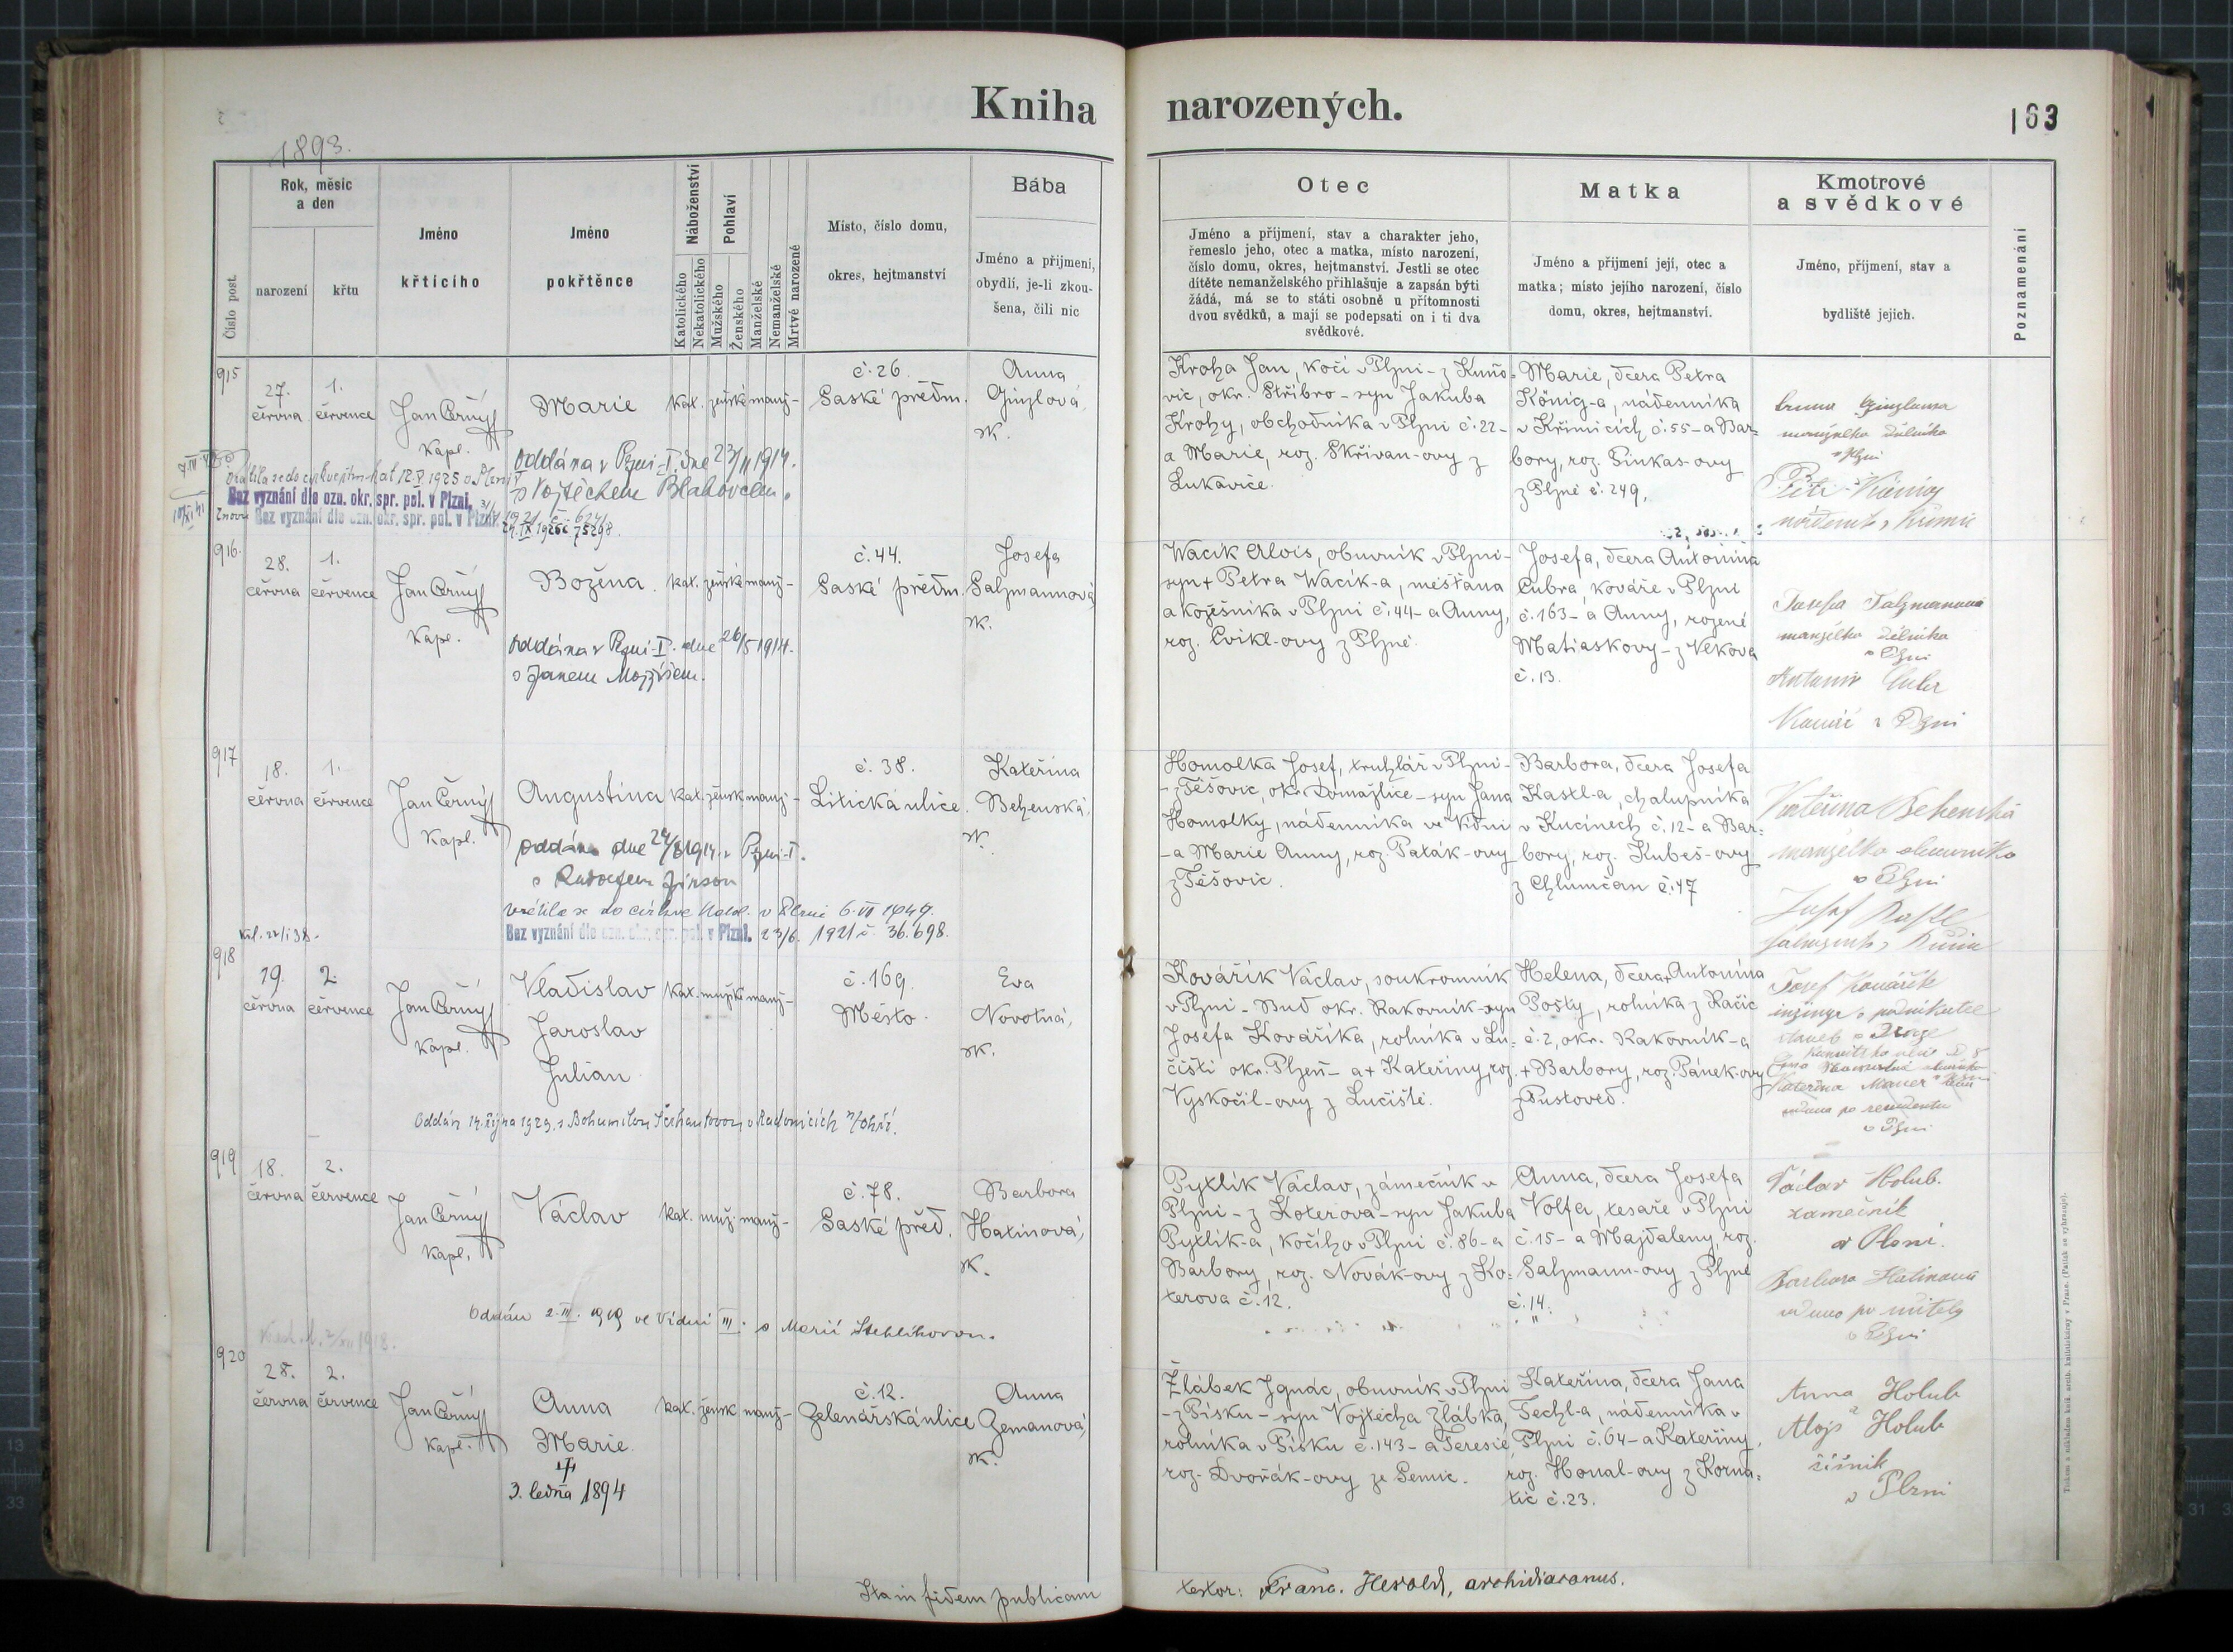 Kniha narozených.
163
1893.
Číslo post.
Rok, měsíc
a den
narození
křtu
Jméno
křtícího
Jméno
pokřtěnce
Náboženství
Katolického
Nekatolického
Pohlaví
Mužského
Ženského
Manželské
Nemanželské
Mrtvě narozené
Místo, číslo domu,
okres, hejtmanství
Bába
Jméno a přijmení,
obydlí, je-li zkou-
šena, čili nic
Otec
Jméno a příjmení, stav a charakter jeho,
řemeslo jeho, otec a matka, místo narození,
číslo domu, okres, hejtmanství. Jestli se otec
dítěte nemanželského přihlašuje a zapsán býti
žádá, má se to státi osobně u přítomnosti
dvou svědků, a mají se podepsati on i ti dva
svědkové.
Matka
Jméno a přijmení její, otec a
matka; místo jejího narození, číslo
domu, okres, hejtmanství.
Kmotrové
a svědkové
Jméno, přijmení, stav a
bydliště jejich.
Poznamenání
915
27.
června
1.
července
Jan Černý
kapl.
Marie
kat. ženské manž-
č. 26.
Saské předm.
Anna
Ginzlová,
zk.
Oddána v Plzni-I. dne 23/II 1914.
s Vojtěchem Blahovcem.
Bez vyznání dle ozn. okr. spr. pol. v Plzni.
znovu Bez vyznání dle ozn. okr. spr. pol. v Plzni.
Kroha Jan, kočí v Plzni - z Kuňo-
vic, okr. Stříbro - syn Jakuba
Krohy, obchodníka v Plzni č. 22-
a Marie, roz. Skřivan-ovy z
Lukavice.
Marie, dcera Petra
König-a, nádenníka
v Křimicích č. 55 - a Bar-
bory, roz. Sinkas-ovy
z Plzně č. 249.
manželka dělníka
v Plzni
916.
28.
června
1.
července
Jan Černý
kapl.
Božena.
kat. ženské manž-
č. 44.
Saské předm.
Josefa
Salzmannová,
zk.
Oddána v Plzni-I. dne 26/5 1914.
s Janem Mojžíšem.
Wacík Alois, obuvník v Plzni-
syn + Petra Wacík-a, měšťana
a kožešníka v Plzni č. 44 - a Anny,
roz. Cvikl-ovy z Plzně.
Josefa, dcera Antonína
Cubra, kováře v Plzni
č. 163 - a Anny, rozené
Matiaskovy - z Vekova
č. 13.
Josefa Salzmannová
manželka dělníka
v Plzni
Antonín Cubr
Kovář v Plzni
917
18.
června
1.
července
Jan Černý
kapl.
Augustina
kat. žensk manž-
č. 38.
Litická ulice.
Kateřina
Behenská,
zk.
Oddána dne 24/8 1914 v Plzni-I.
vrátila se do církve katol. v Plzni 6. VII 1949.
Bez vyznání dle ozn. okr. spr. pol. v Plzni. 23/6. 1921 č. 36.698.
Homolka Josef, truhlář v Plzni-
- z Těšovic, okr. Domažlice - syn Jana
Homolky, nádenníka ve Vídni
- a Marie Anny, roz. Paták-ovy
z Těšovic.
Barbora, dcera Josefa
Kastl-a, chalupníka
v Kucinech č. 12 - a Bar-
bory, roz. Kubeš-ovy
z Chlumčan č. 47
Kateřina Behenská
manželka obuvníka
v Plzni
Josef Kastl
918
19.
června
2.
července
Jan Černý
kapl.
Vladislav
Jaroslav
Julian
kat. mužské manž-
č. 169.
Město.
Eva
Novotná,
zk.
Oddán 14. října 1929. s Bohumilou v Radonicích n/Ohří.
Kovářík Václav, soukromník
v Plzni - Bud okr. Rakovník - syn
Josefa Kováříka, rolníka v Lu-
čišti okr. Plzeň - a + Kateřiny, roz.
Vyskočil-ovy z Lučiště.
Helena, dcera + Antonína
Pošty, rolníka z Račic
č. 2, okr. Rakovník - a
+ Barbory, roz. Pánek-ovy
z Pustověd.
Josef Kovářík
inženýr a podnikatel
staveb v Praze
Kateřina Mauer
v Plzni
919
18.
června
2.
července
Jan Černý
kapl.
Václav
kat. muž. manž-
č. 78.
Saské před.
Barbora
Hatinová,
zk.
Oddán 2. III. 1919 ve Vídni III. s Marií Stehlíkovou.
Pytlík Václav, zámečník v
Plzni - z Koterova - syn Jakuba
Pytlík-a, kočího v Plzni č. 86 - a
Barbory, roz. Novák-ovy z Ko-
terova č. 12.
Anna, dcera Josefa
Volfa, tesaře v Plzni
č. 15 - a Majdaleny, roz.
Salzmann-ovy z Plzně
č. 14.
Václav Holub.
zámečník
v Plzni.
Barbora Hatinová
vdova po učiteli
v Plzni
920
28.
června
2.
července
Jan Černý
kapl.
Anna
Marie.
3. ledna 1894
kat. žensk manž-
č. 12.
Zelenářská ulice
Anna
Zemanová,
zk.
Žlábek Ignác, obuvník v Plzni
- z Písku - syn Vojtěcha Žlábka,
rolníka v Písku č. 143 - a Teresie,
roz. Dvořák-ovy ze Semic.
Kateřina, dcera Jana
Techl-a, nádenníka v
Plzni č. 64 - a Kateřiny,
roz. Honal-ovy z Korna-
tic č. 23.
Anna Holub
Alojs Holub
číšník
v Plzni
Ita in fidem publicam
testor: Franc. Herold, archidiaconus.